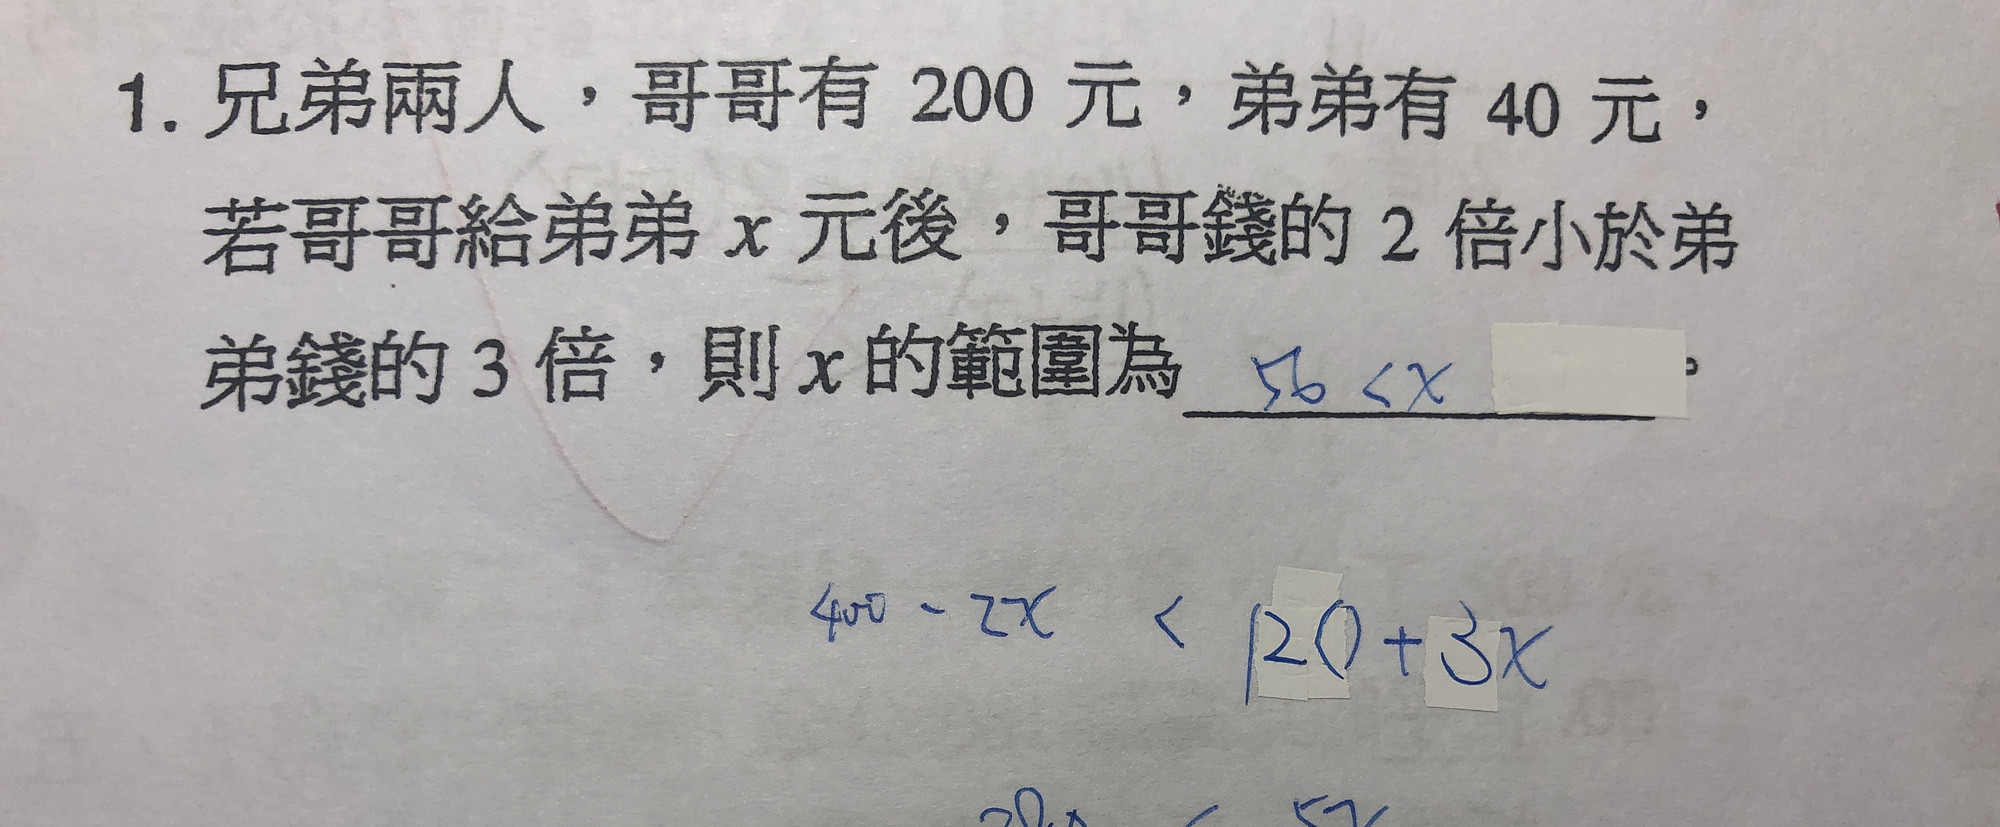 1. 兄弟兩人，哥哥有 200 元，弟弟有 40 元，
若哥哥給弟弟 x 元後，哥哥錢的 2 倍小於弟
弟錢的 3 倍，則 x 的範圍為 56 < x 。
400 - 2x < 120 + 3x
280 < 5x